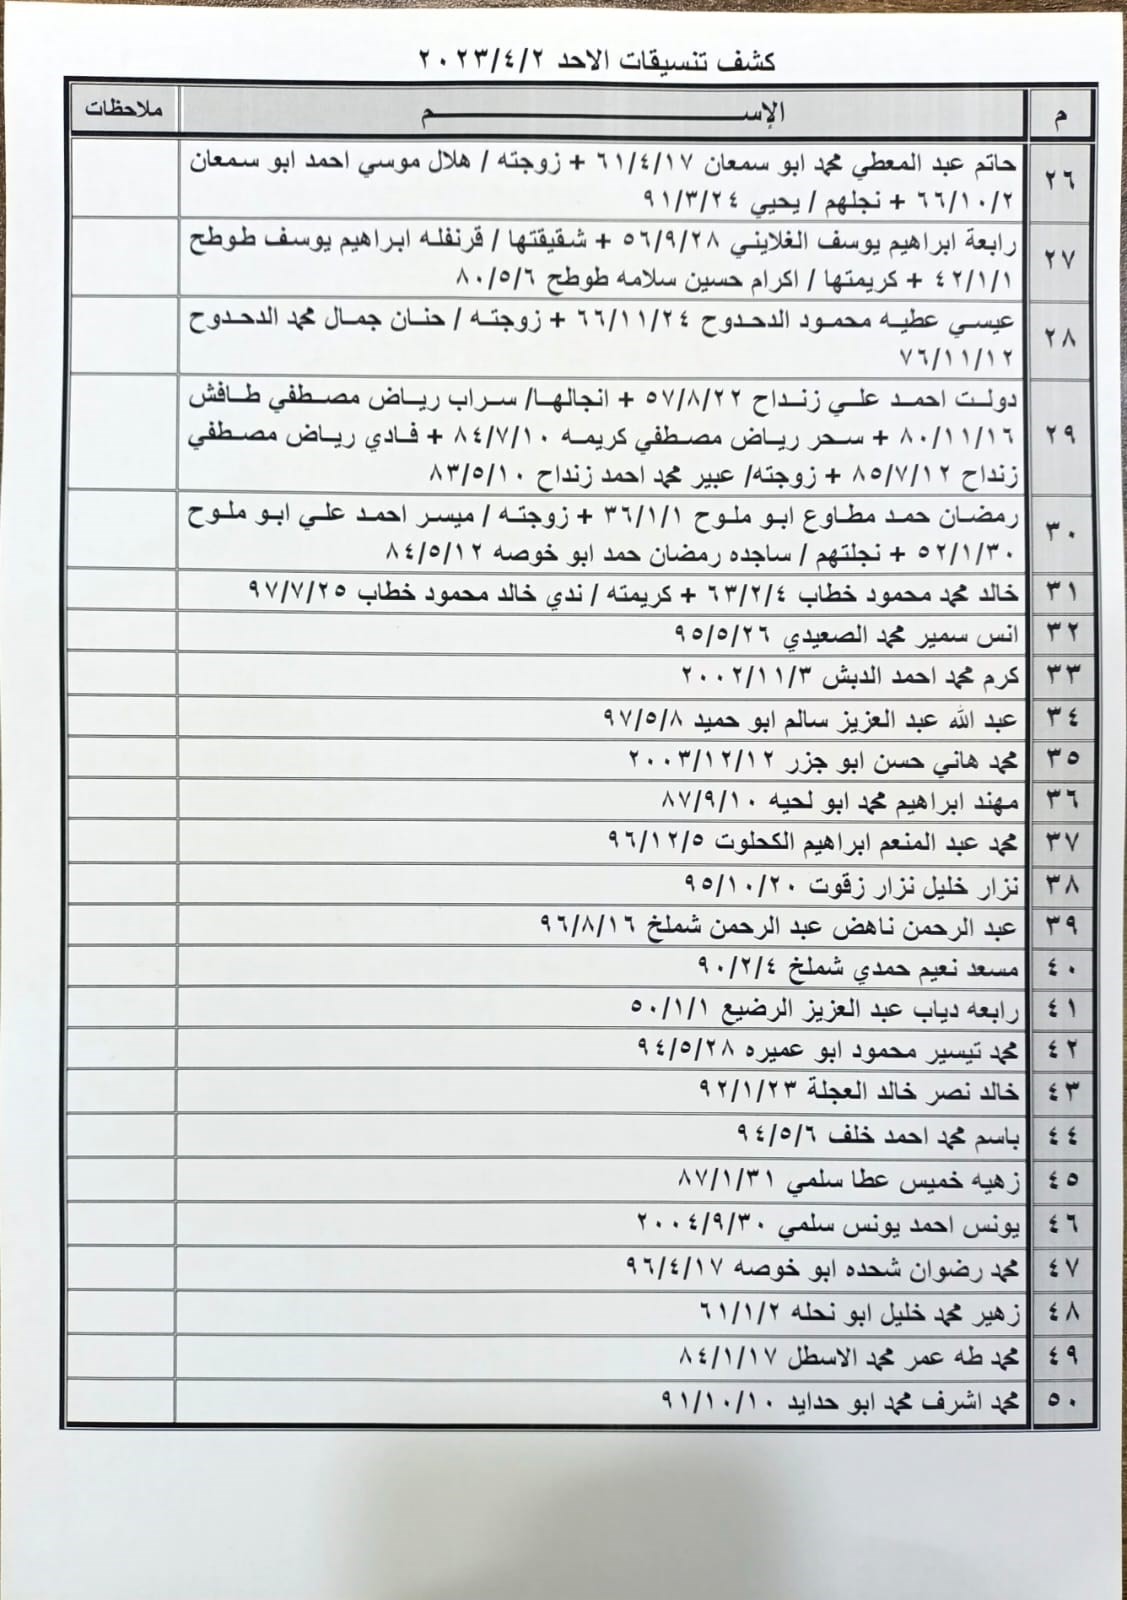 كشف تنسيقات الاحد ٢٠٢٣/٤/٢
م الإســـــــــم ملاحظات
٢٦ حاتم عبد المعطي محمد ابو سمعان ٦١/٤/١٧ + زوجته / هلال موسي احمد ابو سمعان
٦٦/١٠/٢ + نجلهم / يحيي ٩١/٣/٢٤
٢٧ رابعة ابراهيم يوسف الغلايني ٥٦/٩/٢٨ + شقيقتها / قرنفله ابراهيم يوسف طوطح
٤٢/١/١ + كريمتها / اكرام حسين سلامه طوطح ٨٠/٥/٦
٢٨ عيسي عطيه محمود الدحدوح ٦٦/١١/٢٤ + زوجته / حنان جمال محمد الدحدوح
٧٦/١١/١٢
٢٩ دولت احمد علي زنداح ٥٧/٨/٢٢ + انجالها/ سراب رياض مصطفي طافش
٨٠/١١/١٦ + سحر رياض مصطفي كريمه ٨٤/٧/١٠ + فادي رياض مصطفي
زنداح ٨٥/٧/١٢ + زوجته/ عبير محمد احمد زنداح ٨٣/٥/١٠
٣٠ رمضان حمد مطاوع ابو ملوح ٣٦/١/١ + زوجته / ميسر احمد علي ابو ملوح
٥٢/١/٣٠ + نجلتهم / ساجده رمضان حمد ابو خوصه ٨٤/٥/١٢
٣١ خالد محمد محمود خطاب ٦٣/٢/٤ + كريمته / ندي خالد محمود خطاب ٩٧/٧/٢٥
٣٢ انس سمير محمد الصعيدي ٩٥/٥/٢٦
٣٣ كرم محمد احمد الدبش ٢٠٠٢/١١/٣
٣٤ عبد الله عبد العزيز سالم ابو حميد ٩٧/٥/٨
٣٥ محمد هاني حسن ابو جزر ٢٠٠٣/١٢/١٢
٣٦ مهند ابراهيم محمد ابو لحيه ٨٧/٩/١٠
٣٧ محمد عبد المنعم ابراهيم الكحلوت ٩٦/١٢/٥
٣٨ نزار خليل نزار زقوت ٩٥/١٠/٢٠
٣٩ عبد الرحمن ناهض عبد الرحمن شملخ ٩٦/٨/١٦
٤٠ مسعد نعيم حمدي شملخ ٩٠/٢/٤
٤١ رابعه دياب عبد العزيز الرضيع ٥٠/١/١
٤٢ محمد تيسير محمود ابو عميره ٩٤/٥/٢٨
٤٣ خالد نصر خالد العجلة ٩٢/١/٢٣
٤٤ باسم محمد احمد خلف ٩٤/٥/٦
٤٥ زهيه خميس عطا سلمي ٨٧/١/٣١
٤٦ يونس احمد يونس سلمي ٢٠٠٤/٩/٣٠
٤٧ محمد رضوان شحده ابو خوصه ٩٦/٤/١٧
٤٨ زهير محمد خليل ابو نحله ٦١/١/٢
٤٩ محمد طه عمر محمد الاسطل ٨٤/١/١٧
٥٠ محمد اشرف محمد ابو حدايد ٩١/١٠/١٠